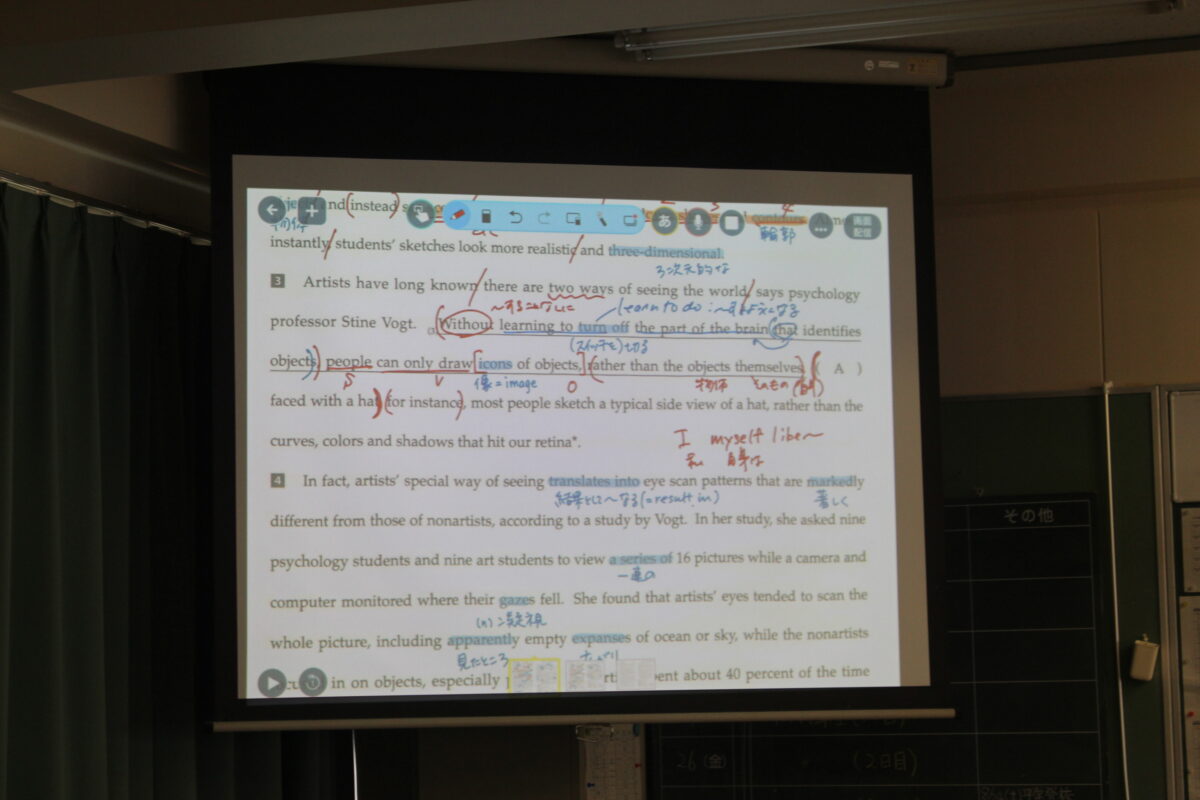 nd (instead) s
contours. A
輪郭
instantly, students' sketches look more realistic and three-dimensional.
3次元的な
3 Artists have long known there are two ways of seeing the world, says psychology
〜することなしに learn to do:〜するようになる
professor Stine Vogt. Without learning to turn off the part of the brain that identifies
(スイッチを)切る
objects, people can only draw [icons of objects,] (rather than the objects themselves). ( A )
S V 像=image O 物体 そのもの
faced with a hat, (for instance), most people sketch a typical side view of a hat, rather than the
curves, colors and shadows that hit our retina*.
I myself like〜
私 自身は
4 In fact, artists' special way of seeing translates into eye scan patterns that are markedly
結果として〜なる(=result in) 著しく
different from those of nonartists, according to a study by Vogt. In her study, she asked nine
psychology students and nine art students to view a series of 16 pictures while a camera and
一連の
computer monitored where their gazes fell. She found that artists' eyes tended to scan the
(n):凝視
whole picture, including apparently empty expanses of ocean or sky, while the nonartists
見たところ
in on objects, especially
ent about 40 percent of the time
あ
画面
配信
その他
26(金)
(2日目)